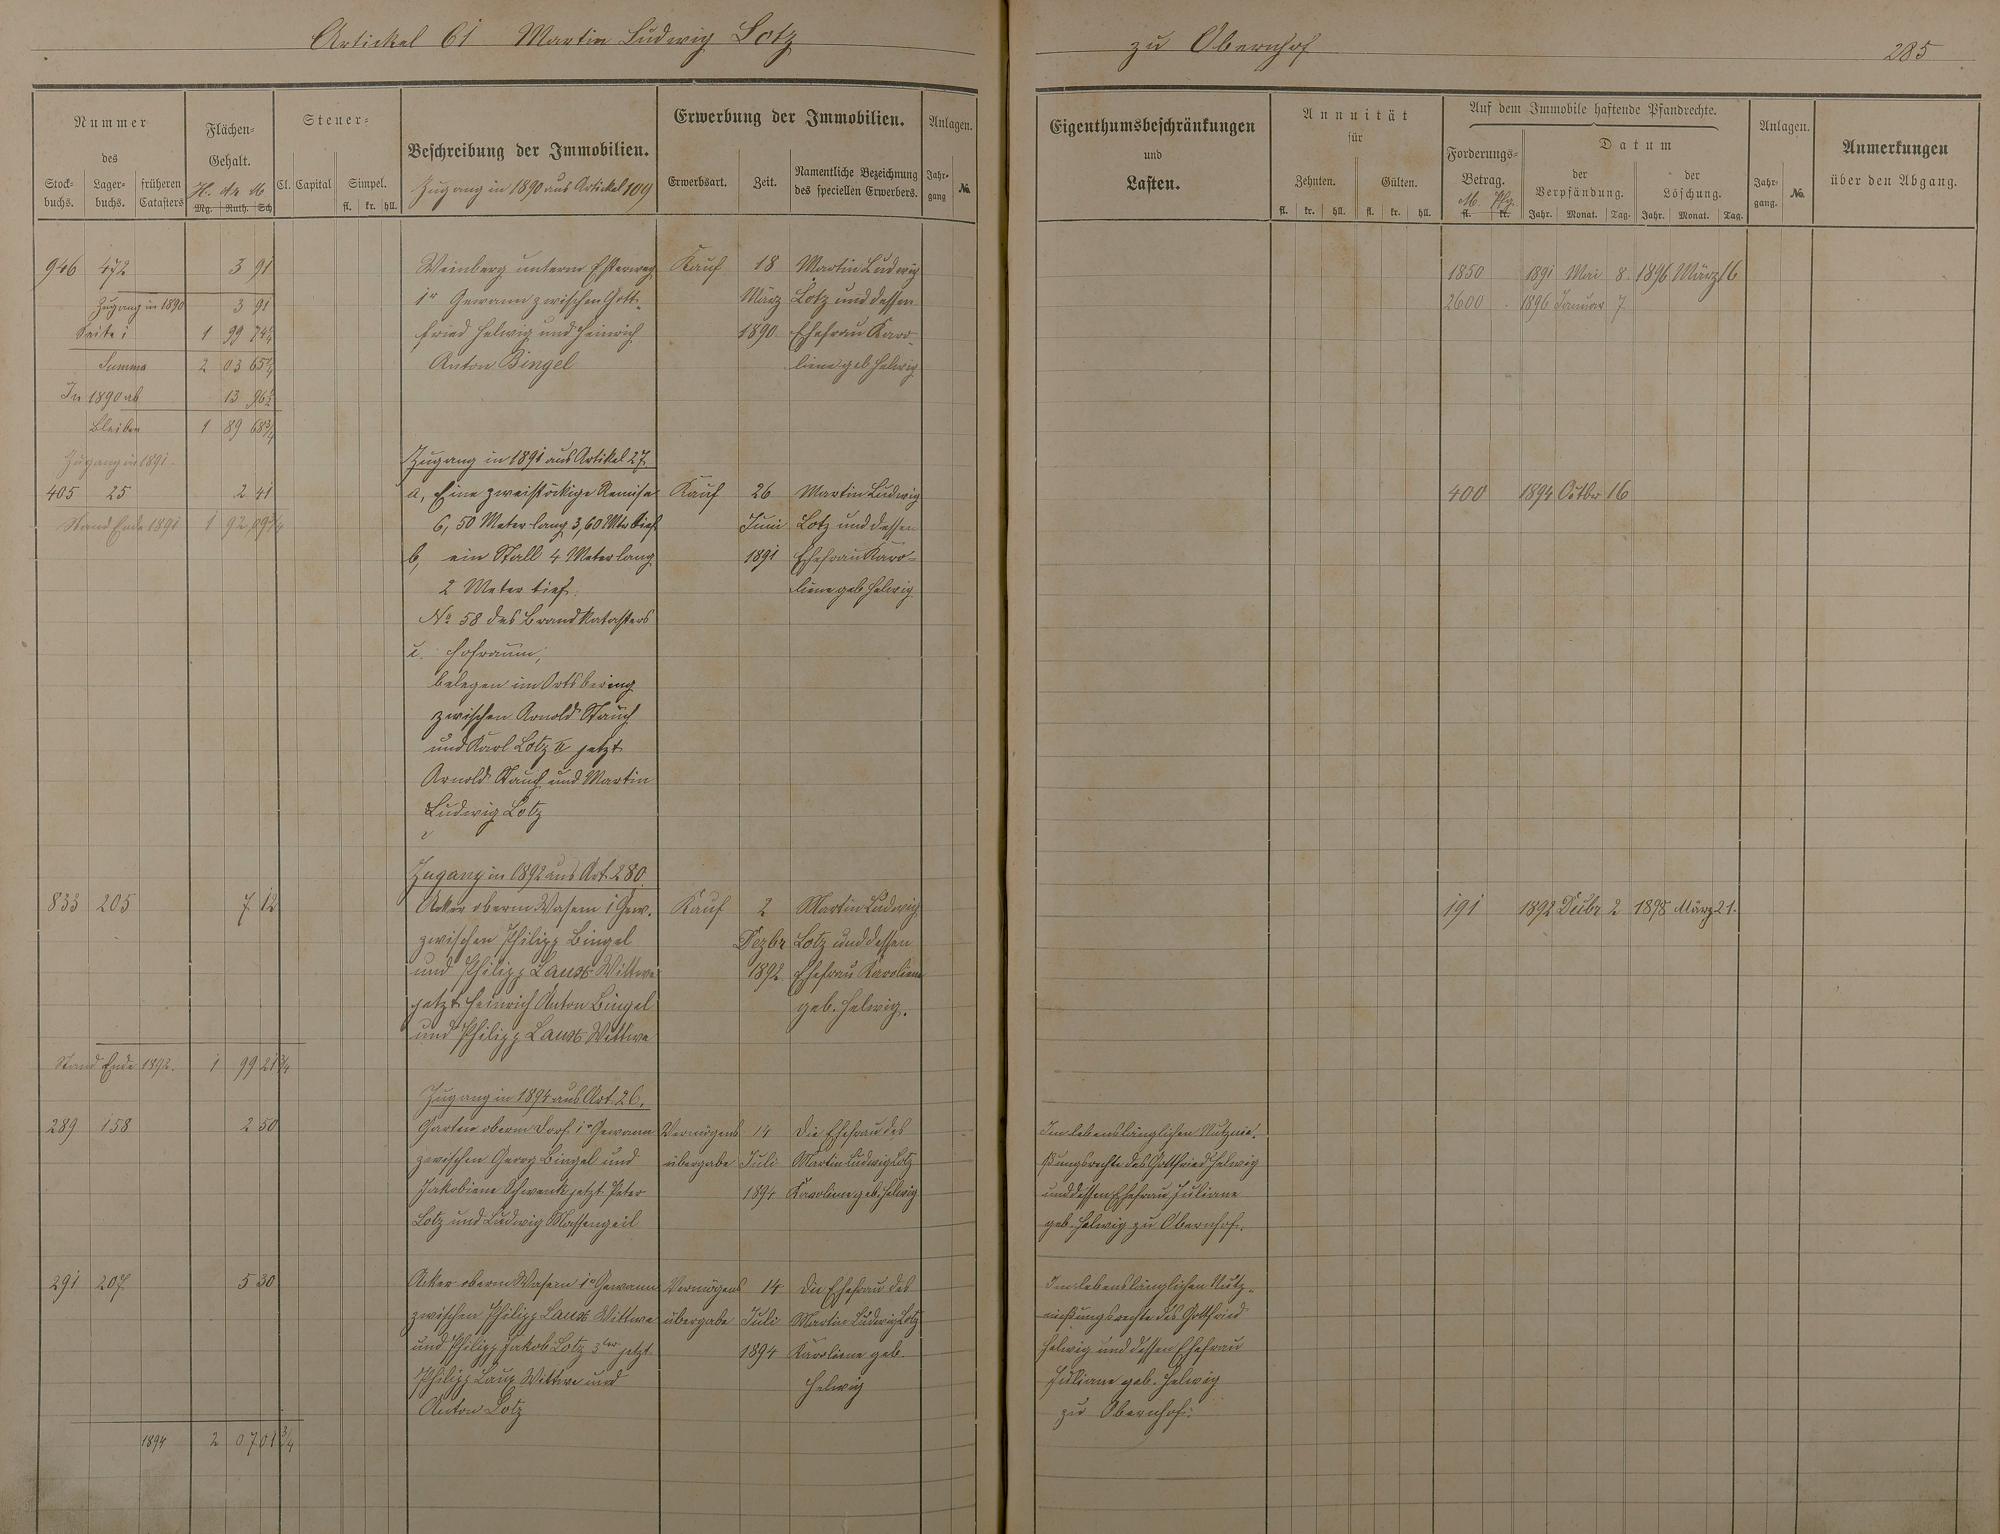 Artickel 61 Martin Ludwig Lotz
zu Obernhof
285
Nummer
des
Stock-
buchs.
Lager-
buchs.
früheren
Catasters
Flächen-
Gehalt.
H. Ar M
Mg. Ruth. Sch
Steuer-
Cl. Capital Simpel.
fl. kr. hll.
Beschreibung der Immobilien.
Zugang in 1890 aus Artickel 109
Erwerbung der Immobilien.
Erwerbsart. Zeit.
Namentliche Bezeichnung
des speciellen Erwerbers.
Anlagen.
Jahr-
gang
No.
Eigenthumsbeschränkungen
und
Lasten.
Annuität
für
Zehnten. Gülten.
fl. kr. hll. fl. kr. hll.
Auf dem Immobile haftende Pfandrechte.
Forderungs-
Betrag.
M. Pfg.
fl. kr.
Datum
der
Verpfändung.
der
Löschung.
Jahr. Monat. Tag. Jahr. Monat. Tag.
Anlagen.
Jahr-
gang.
No.
Anmerkungen
über den Abgang.
946 472 3 91 Weinberg unterm Esterweg Kauf 18 Martin Ludwig 1850 1891 Mai 8 1896 März 16
Zugang in 1890 3 91 1r Gewann zwischen Gott- März Lotz und dessen 2600 1896 Januar 7
Seite 1 1 99 74¼ fried Helwig und Heinrich 1890 Ehefrau Karo-
Summa 2 03 65¼ Anton Bingel liene geb Helwig
In 1890 ab 13 96½
Bleiben 1 89 68¾
Zugang in 1891. Zugang in 1891 aus Artikel 27
405 25 2 41 a, Eine zweistöckige Remise Kauf 26 Martin Ludwig 400 1894 Octbr 16
Stand Ende 1891 1 92 09¾ 6,50 Meter lang 3,60 Mtr tief Juni Lotz und dessen
b, ein Stall 4 Meter lang 1891 Ehefrau Karo-
2 Meter tief. liene geb Helwig.
No 58 des Brandkatasters
c. Hofraum,
belegen im Ortsbering
zwischen Arnold Stauch
und Karl Lotz II jetzt
Arnold Stauch und Martin
Ludwig Lotz
Zugang in 1892 aus Art. 280.
833 205 7 12 Acker oberm Wasem 1 Gew. Kauf 2 Martin Ludwig 191 1892 Dezbr 2 1898 März 21.
zwischen Philipp Bingel Dezbr Lotz und dessen
und Philipp Laux Wittwe 1892 Ehefrau Karoliene
jetzt Heinrich Anton Bingel geb. Helwig.
und Philipp Laux Wittwe
Stand Ende 1892. 1 99 21¾
Zugang in 1894 aus Art. 26.
289 158 2 50 Garten oberm Dorf 1r Gewann Vermögens 14 Die Ehefrau des Im lebenslänglichen Nutznie-
zwischen Georg Bingel und übergabe Juli Martin Ludwig Lotz ßungsrechte des Gottfried Helwig
Jakobiene Schwenk jetzt Peter 1894 Karoliene geb. Helwig und dessen Ehefrau Juliane
Lotz und Ludwig Massengeil geb. Helwig zu Obernhof.
291 207 5 30 Acker oberm Wasem 1r Gewann Vermögens 14 Die Ehefrau des Im lebenslänglichen Nutz-
zwischen Philipp Laux Wittwe übergabe Juli Martin Ludwig Lotz nießungsrechte des Gottfried
und Philipp Jakob Lotz 3ter jetzt 1894 Karoliene geb. Helwig und dessen Ehefrau
Philipp Laux Wittwe und Helwig Juliane geb. Helwig
Anton Lotz zu Obernhof.
1894 2 07 01¾